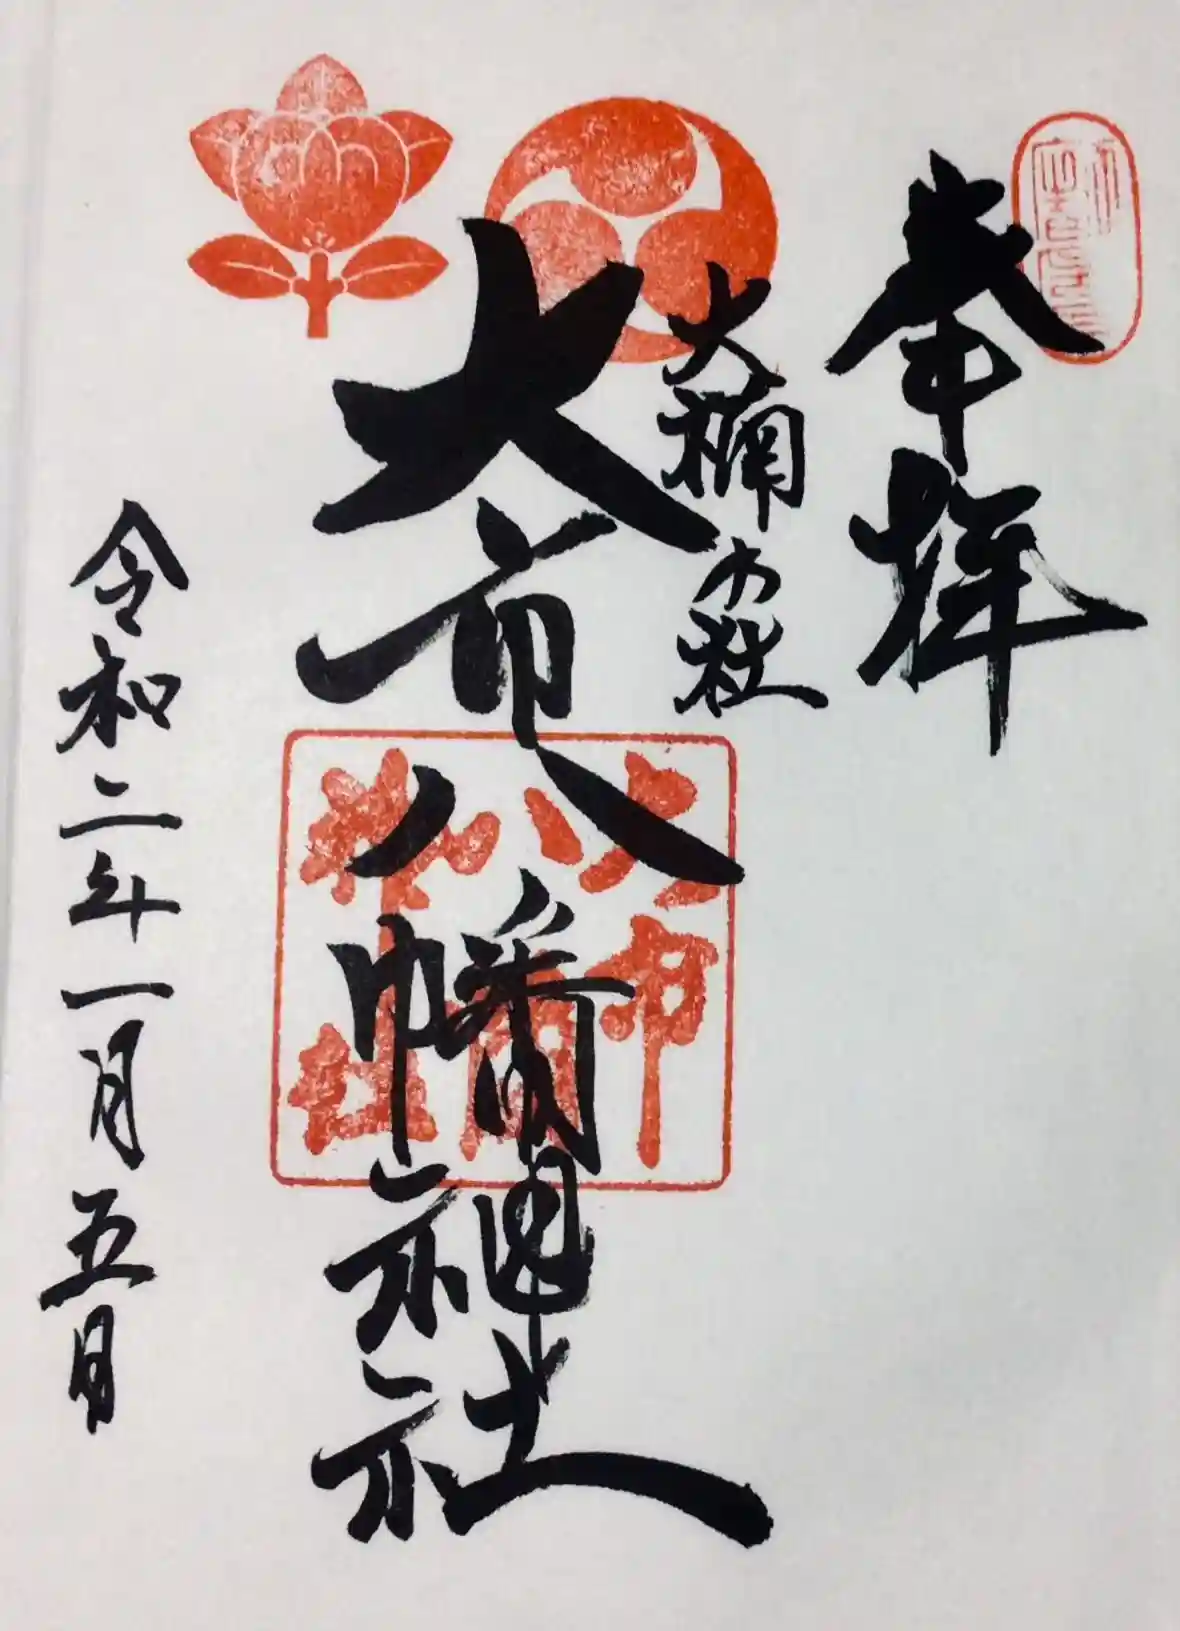 奉拝
大楠の社
大市八幡神社
大市八幡神社
令和二年一月五日